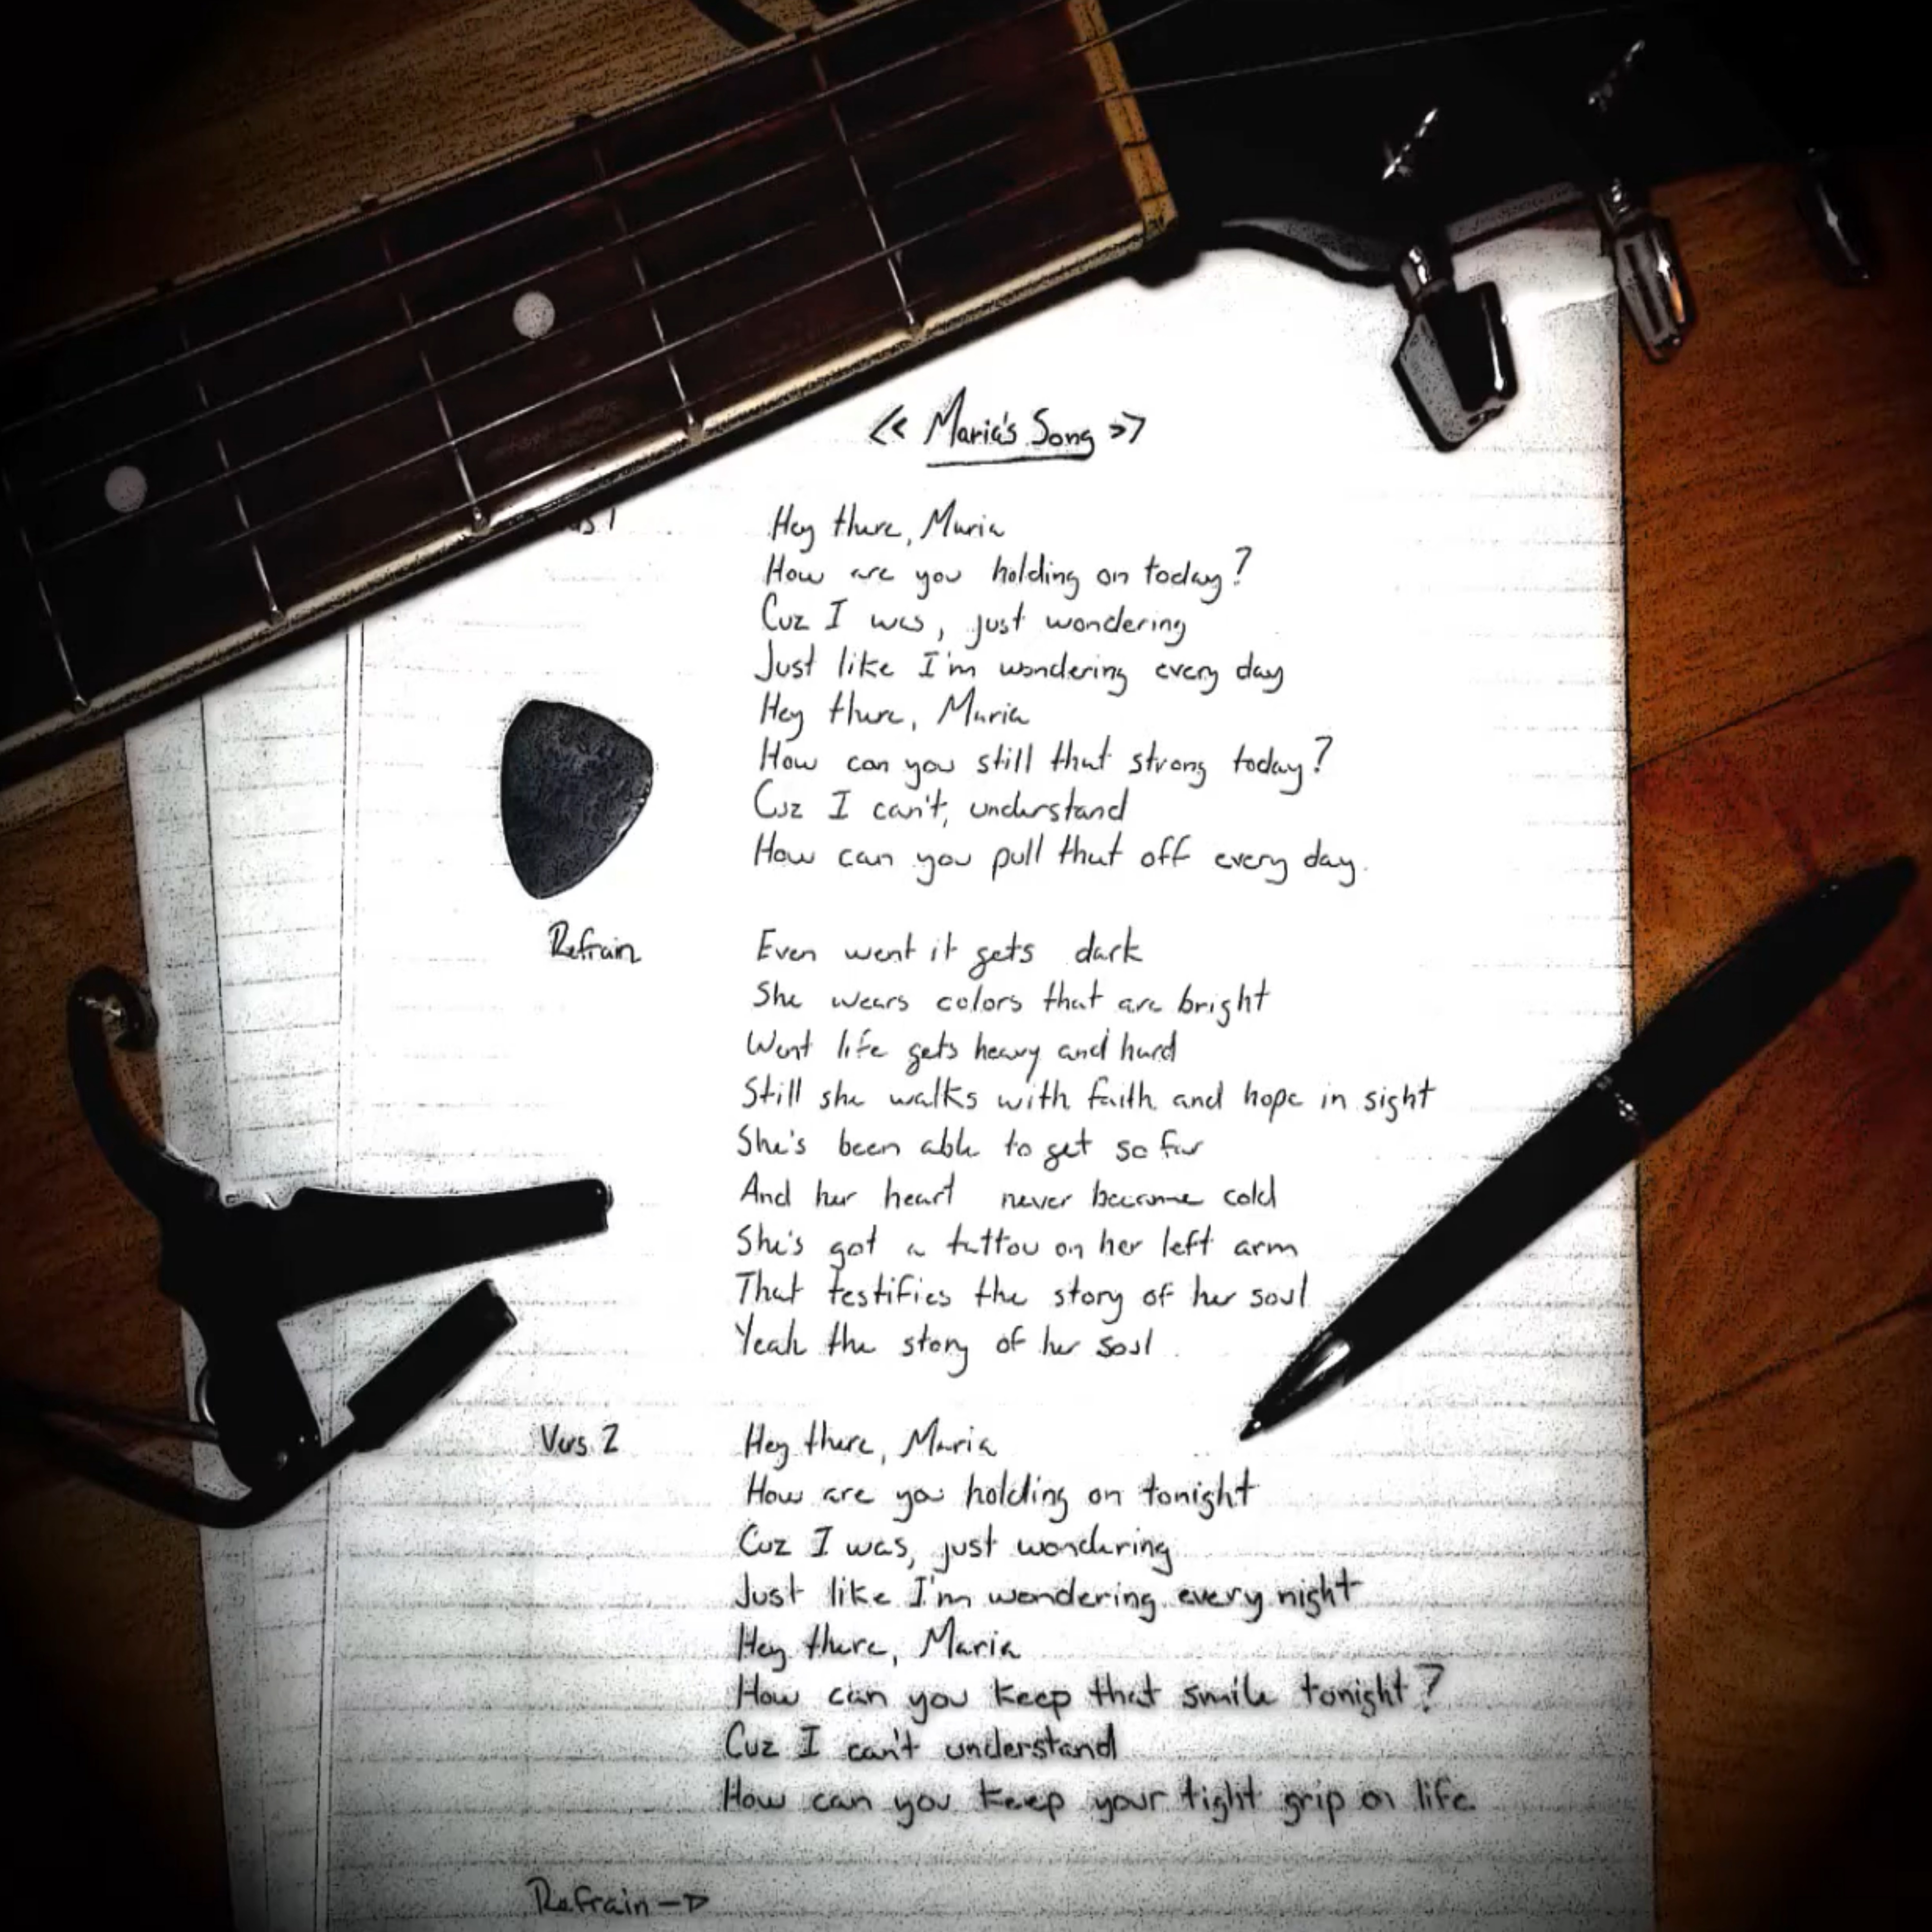 << Maria's Song >>
Hey there, Maria
How are you holding on today?
Cuz I was, just wondering
Just like I'm wondering every day
Hey there, Maria
How can you still that strong today?
Cuz I can't, understand
How can you pull that off every day.
Refrain
Even went it gets dark
She wears colors that are bright
Went life gets heavy and hard
Still she walks with faith and hope in sight
She's been able to get so far
And her heart never became cold
She's got a tattou on her left arm
That testifies the story of her soul
Yeah the story of her soul
Vers 2
Hey there, Maria
How are you holding on tonight
Cuz I was, just wondering
Just like I'm wondering every night
Hey there, Maria
How can you keep that smile tonight?
Cuz I can't understand
How can you keep your tight grip on life.
Refrain →